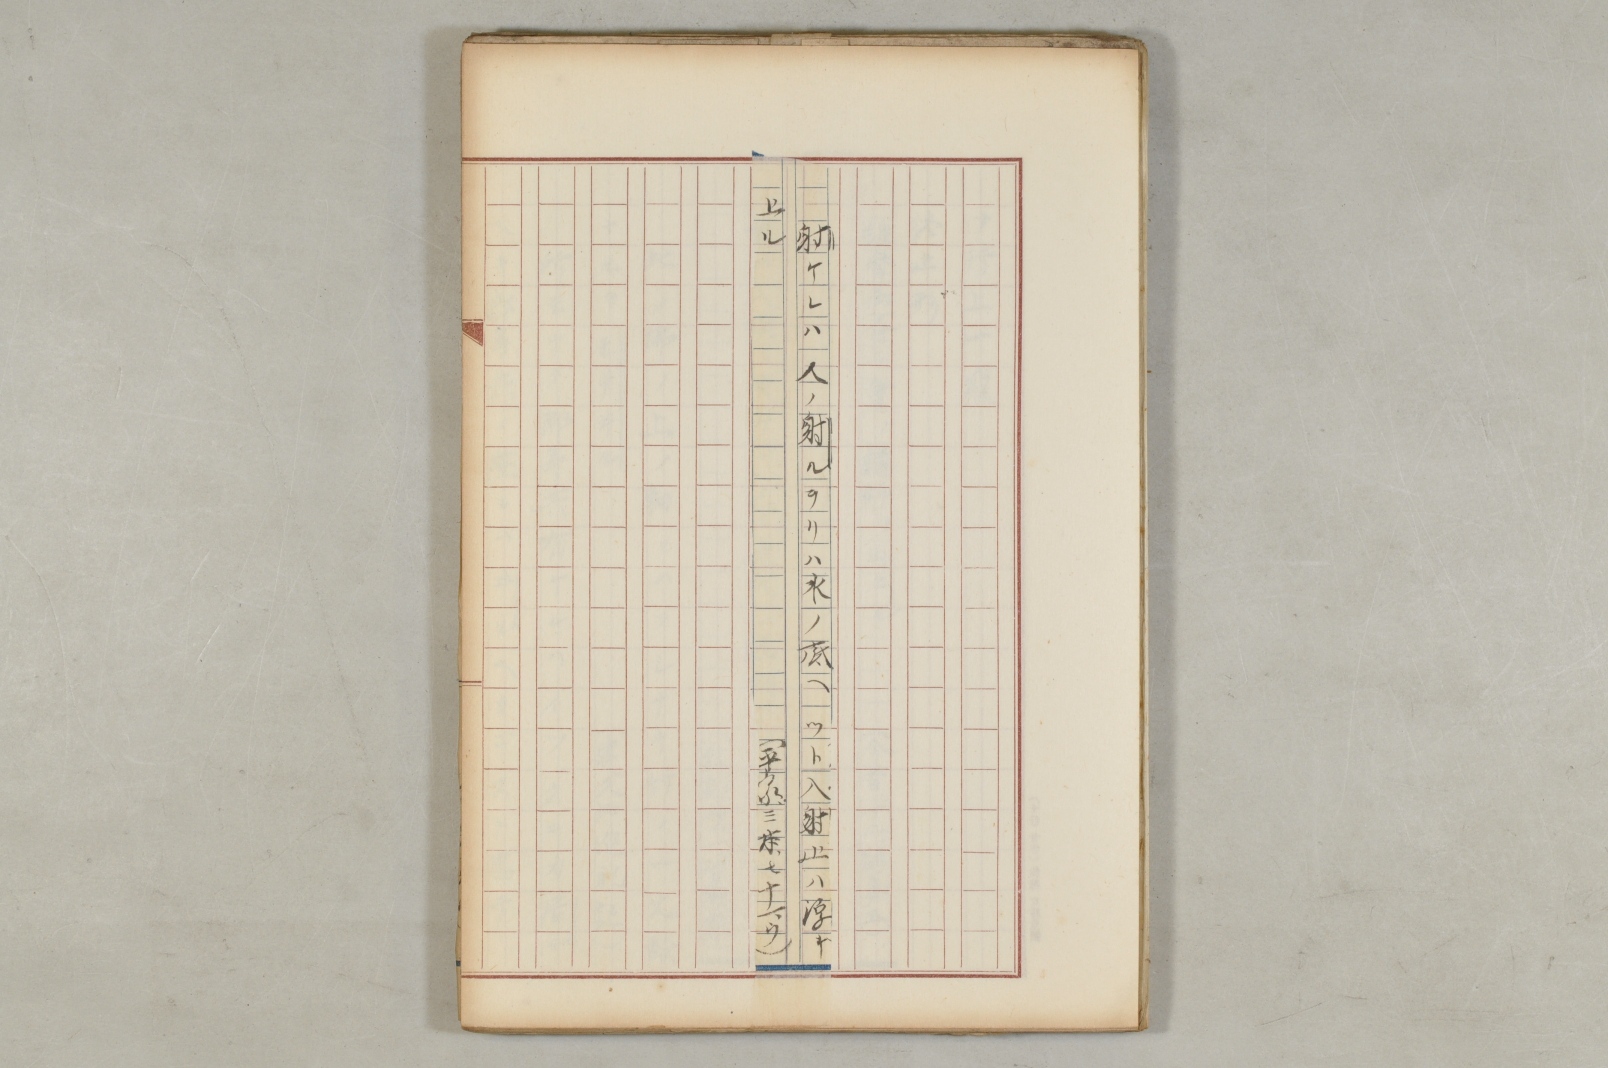 射ケレハ人ノ射ルヲリハ水ノ底ヘツト入射止ハ浮キ
上ル
(平家三 七十六ウ)